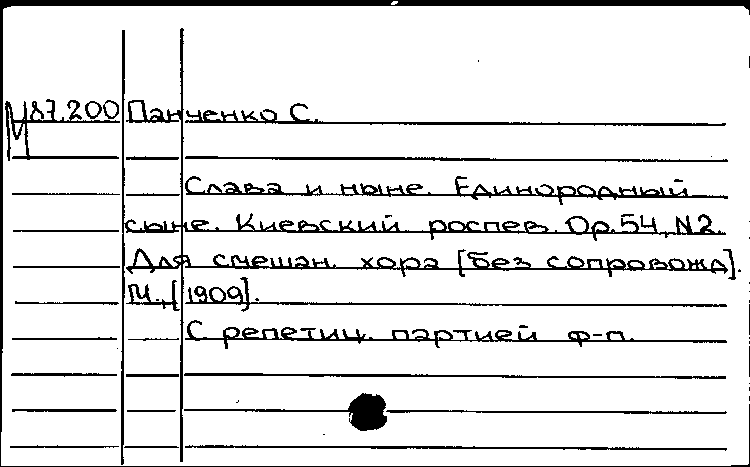 М 87.200 Панченко С.
Слава и ныне. Единородный
сыне. Киевский роспев. Ор. 54, N2.
Для смешан. хора [без сопровожд].
М., [1909].
С репетиц. партией ф-п.